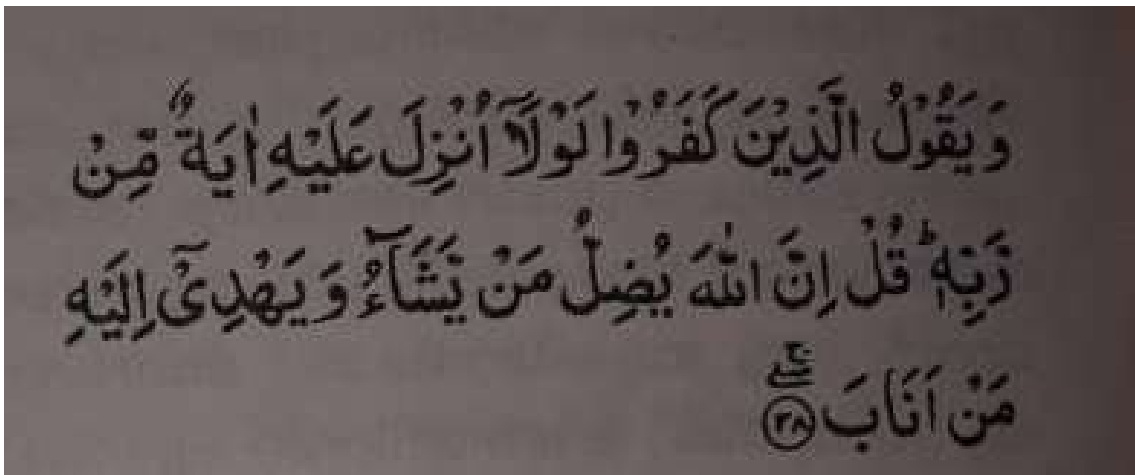 وَيَقُوْلُ الَّذِيْنَ كَفَرُوْا لَوْلَاۤ اُنْزِلَ عَلَيْهِ اٰيَةٌ مِّنْ
رَّبِّهٖ ؕ قُلْ اِنَّ اللّٰهَ يُضِلُّ مَنْ يَّشَآءُ وَيَهْدِيْۤ اِلَيْهِ
مَنْ اَنَابَ ۖۚ ﴿۲۸﴾